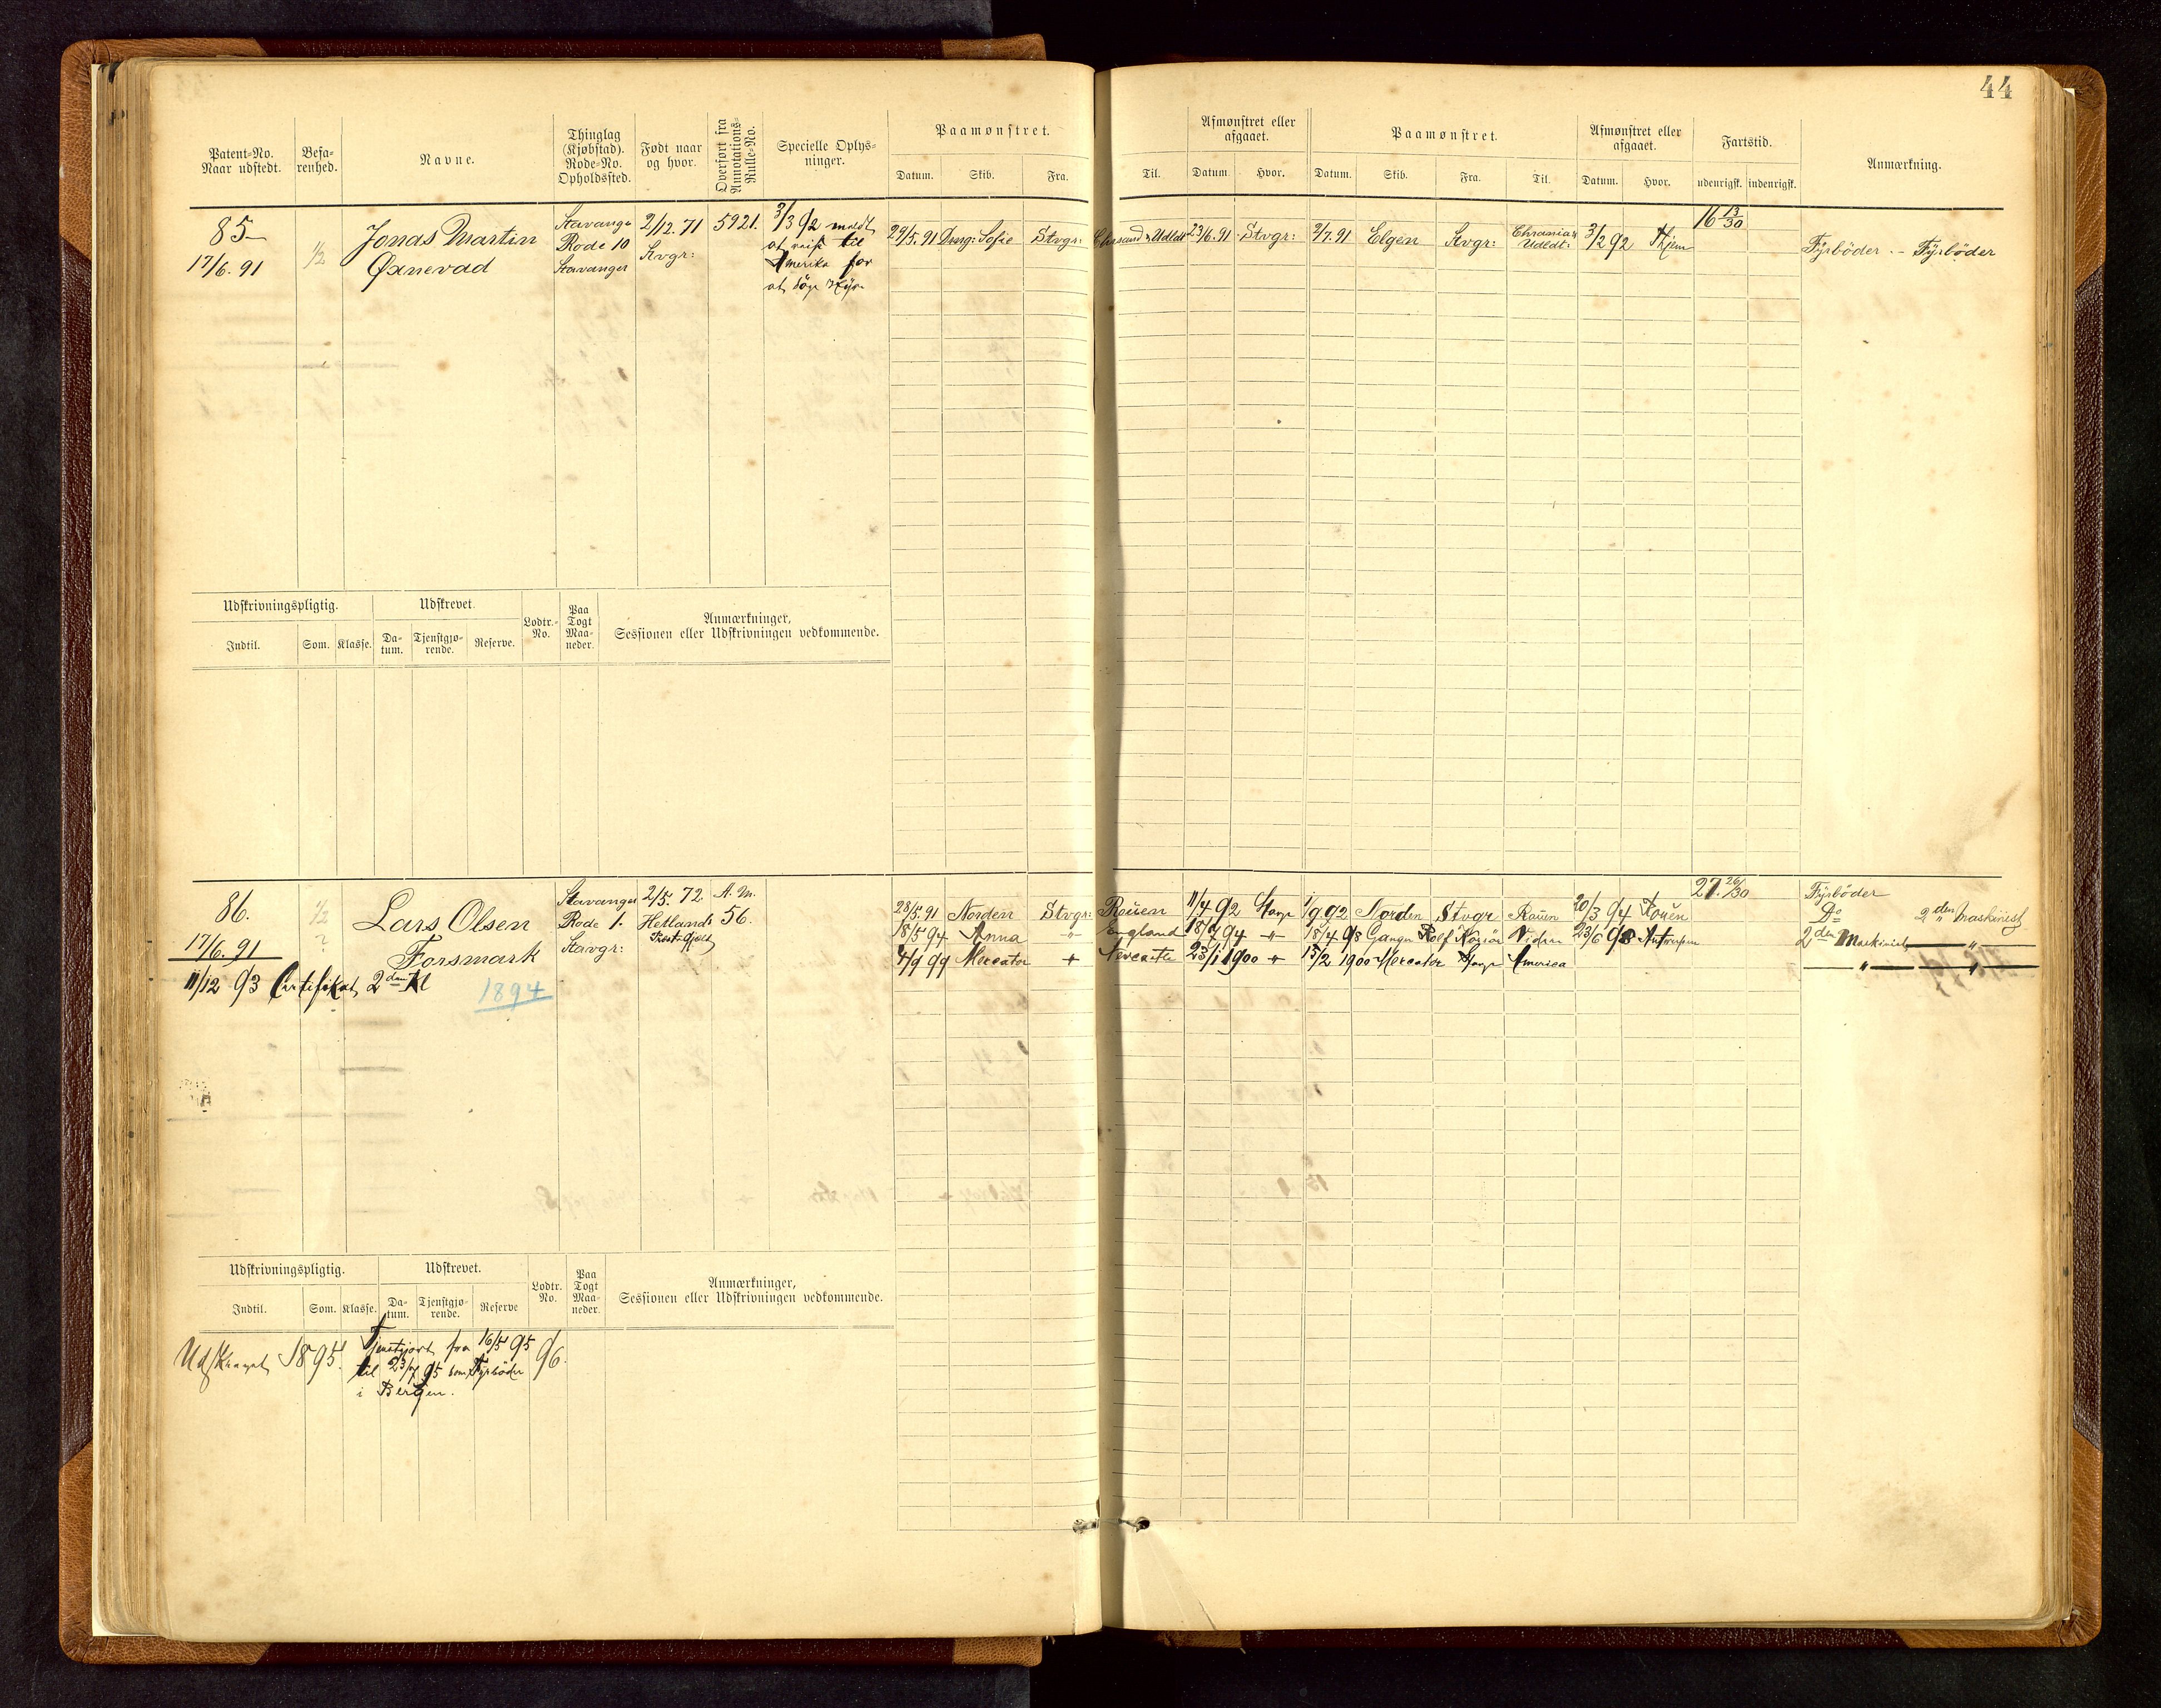 44
Patent-No. Naar udstedt.
Befa-renhed.
Navne.
Thinglag (Kjøbstad). Rode-No. Opholdssted.
Født naar og hvor.
Overført fra Annotations-Rulle-No.
Specielle Oplys-ninger.
Paamønstret.
Datum. Skib. Fra. Til.
Afmønstret eller afgaaet.
Datum. Hvor.
Paamønstret.
Datum. Skib. Fra. Til.
Afmønstret eller afgaaet.
Datum. Hvor.
Fartstid.
udenrigsk. indenrigsk.
Anmærkning.
85
17/6. 91
1/2
Jonas Martin
Øxnevad
Stavanger
Rode 10
Stavanger
2/12. 71
Stvgr:
5921.
3/3 92 meldt
at reise til
Amerika for
at søge Hyre
29/5. 91 Sofie Stvgr: Udledt 23/6. 91 Stvgr: 2/7. 91 Elgen Stvgr: Chrania Udledt: 3/2 92 Hjem 16 13/30
Fyrböder - Fyrböder
Udskrivningspligtig. Udskrevet. Lodtr.-No. Paa Togt Maa-neder. Anmærkninger, Sessionen eller Udskrivningen vedkommende.
Indtil. Som. Klasse. Da-tum. Tjenstgjø-rende. Reserve.
86.
17/6. 91
11/12 93 Certifikat 2den Kl
1894
1/2
Lars Olsen
Forsmark
Stavanger
Rode 1.
Stavgr:
2/5. 72
Hetlands
Præst. Gjeld
A. M.
56.
28/5. 91 Norden Stvgr: Rouen 11/4 92 1/9 92 Norden Stvgr Rouen 20/3 94 Rouen 27. 26/30
18/5 94 Anna " England 18/7 94 " 18/4 98 Ganger Rolf 23/6 98 Antwerpen
4/9 99 Mercator " Newcastle 23/1 1900 " 13/2 1900 Mercator America
Fyrböder
Do 2den Maskinist
2den Maskinist "
" "
Udskrivningspligtig. Udskrevet. Lodtr. No. Paa Togt Maa-neder. Anmærkninger, Sessionen eller Udskrivningen vedkommende.
Indtil. Som. Klasse. Da-tum. Tjenstgjø-rende. Reserve
Udskrevet 1895. Tjenstgjort fra 16/5 95 96.
til 23/7 95 som Fyrböder
i Bergen.